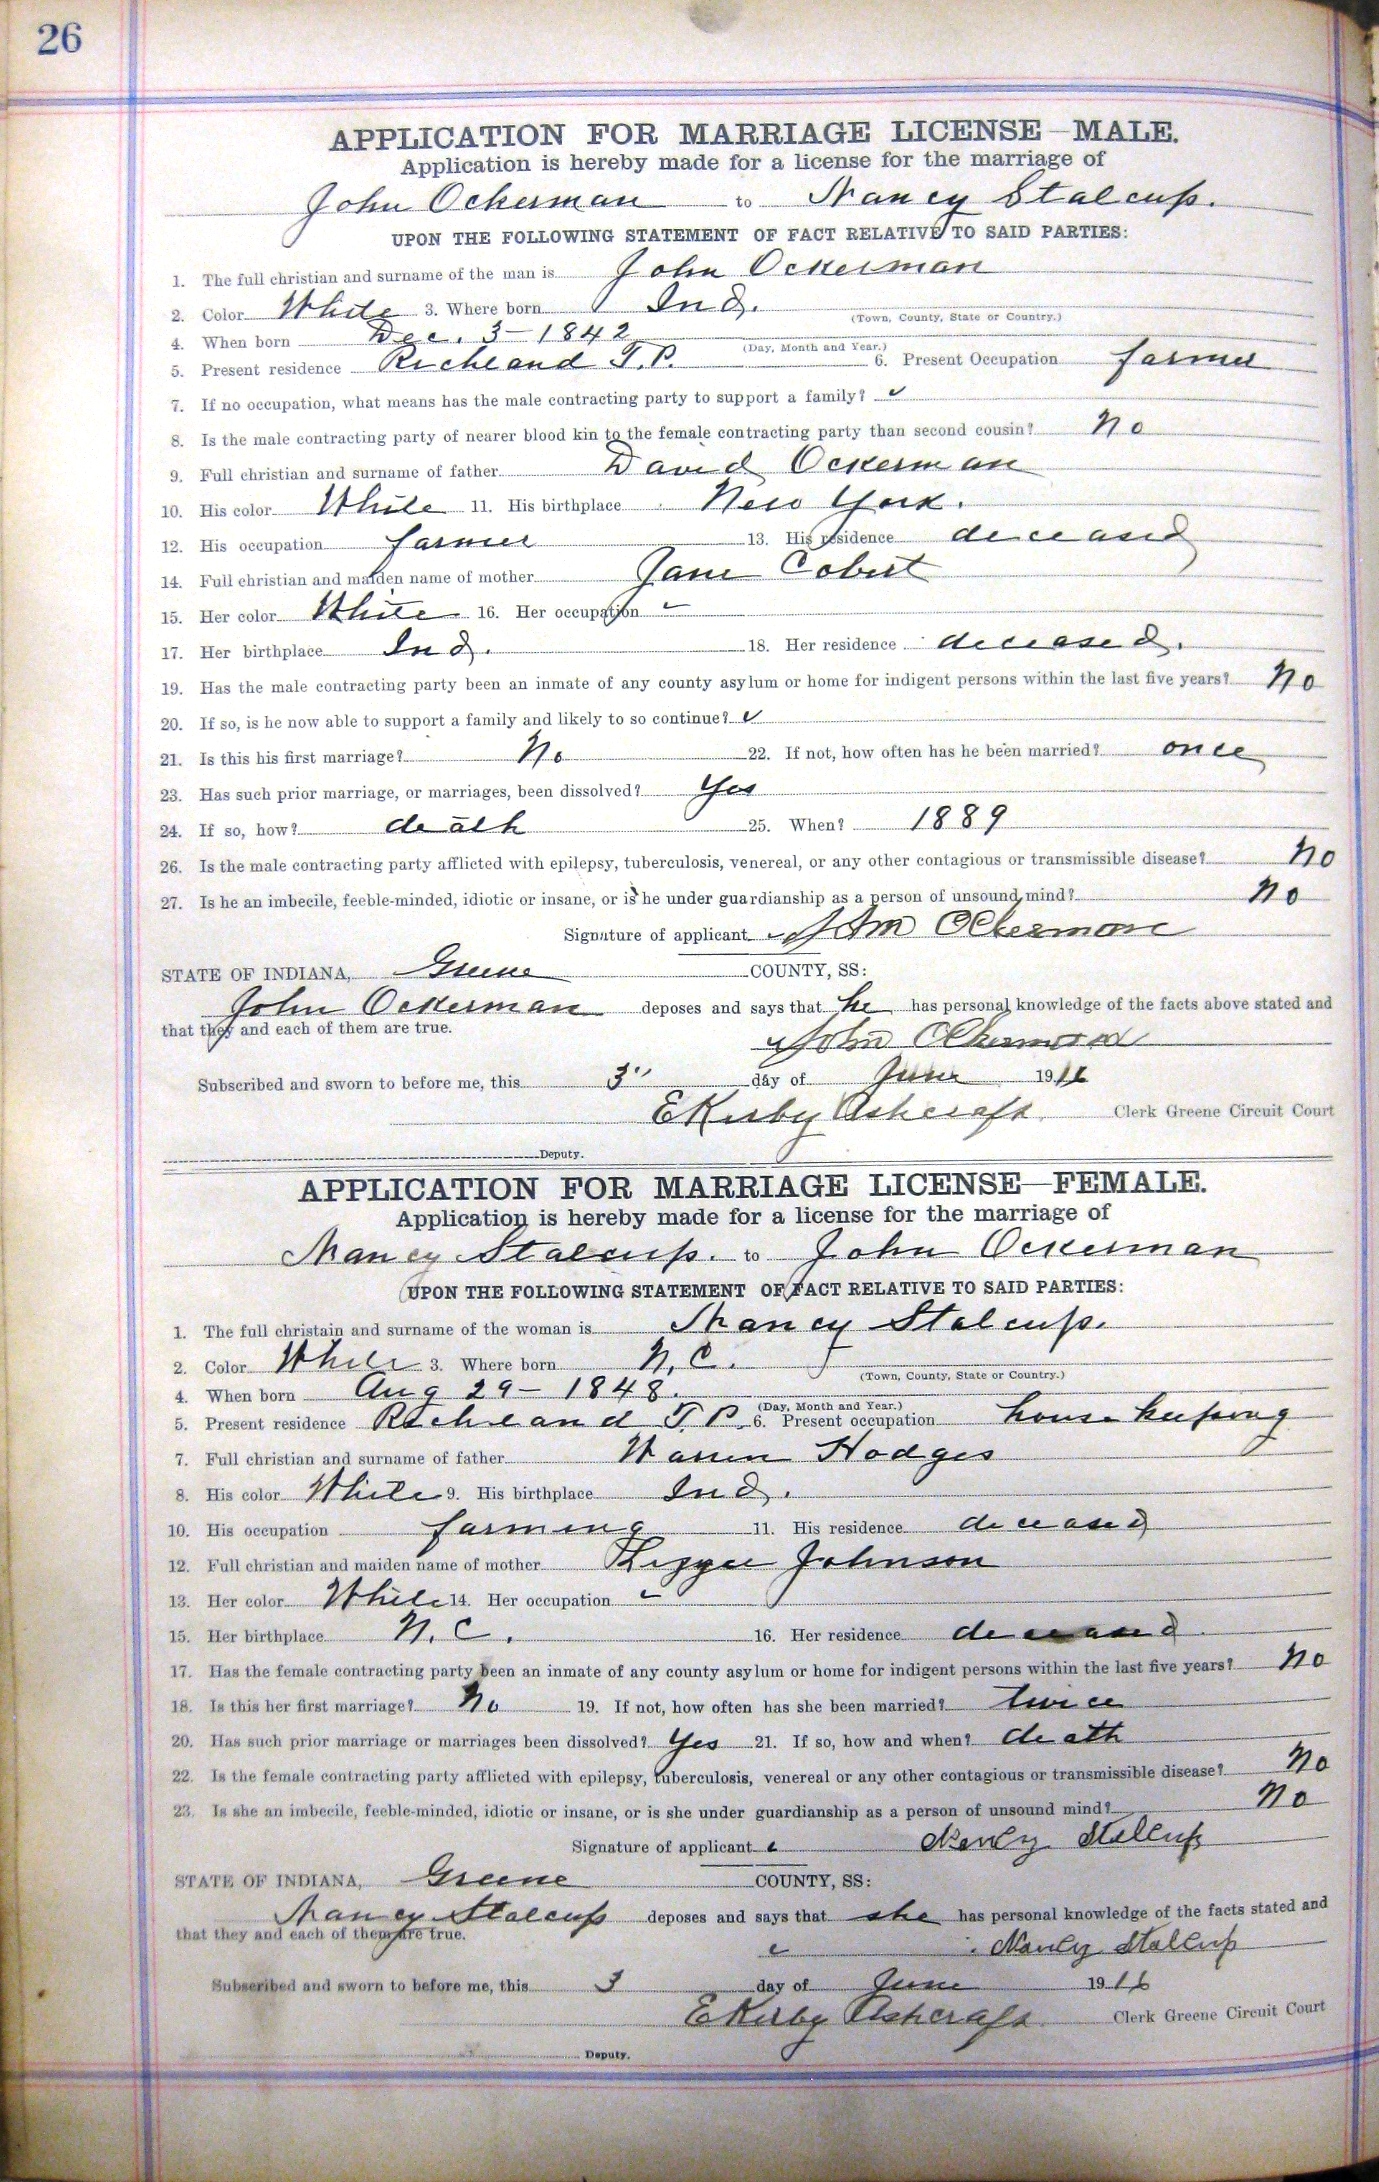 26
APPLICATION FOR MARRIAGE LICENSE—MALE.
Application is hereby made for a license for the marriage of
John Ockerman to Nancy Stalcup.
UPON THE FOLLOWING STATEMENT OF FACT RELATIVE TO SAID PARTIES:
1. The full christian and surname of the man is John Ockerman
2. Color White 3. Where born Ind.
(Town, County, State or Country.)
4. When born Dec. 3 - 1842
(Day, Month and Year.)
5. Present residence Richland T.P. 6. Present Occupation farmer
7. If no occupation, what means has the male contracting party to support a family? ✓
8. Is the male contracting party of nearer blood kin to the female contracting party than second cousin? No
9. Full christian and surname of father David Ockerman
10. His color White 11. His birthplace New York.
12. His occupation farmer 13. His residence deceased
14. Full christian and maiden name of mother Jane Cobert
15. Her color White 16. Her occupation ✓
17. Her birthplace Ind. 18. Her residence deceased.
19. Has the male contracting party been an inmate of any county asylum or home for indigent persons within the last five years? No
20. If so, is he now able to support a family and likely to so continue? ✓
21. Is this his first marriage? No 22. If not, how often has he been married? once
23. Has such prior marriage, or marriages, been dissolved? Yes
24. If so, how? death 25. When? 1889
26. Is the male contracting party afflicted with epilepsy, tuberculosis, venereal, or any other contagious or transmissible disease? No
27. Is he an imbecile, feeble-minded, idiotic or insane, or is he under guardianship as a person of unsound mind? No
Signature of applicant John Ockerman
STATE OF INDIANA, Greene COUNTY, SS:
John Ockerman deposes and says that he has personal knowledge of the facts above stated and
that they and each of them are true.
John Ockerman
Subscribed and sworn to before me, this 3" day of June 1916
E Kirby Ashcraft Clerk Greene Circuit Court
Deputy.
APPLICATION FOR MARRIAGE LICENSE—FEMALE.
Application is hereby made for a license for the marriage of
Nancy Stalcup. to John Ockerman
UPON THE FOLLOWING STATEMENT OF FACT RELATIVE TO SAID PARTIES:
1. The full christain and surname of the woman is Nancy Stalcup.
2. Color White 3. Where born N. C.
(Town, County, State or Country.)
4. When born Aug 29 - 1848.
(Day, Month and Year.)
5. Present residence Richland T.P. 6. Present occupation house keeping
7. Full christian and surname of father Warren Hodges
8. His color White 9. His birthplace Ind.
10. His occupation farming 11. His residence deceased
12. Full christian and maiden name of mother Lizzie Johnson
13. Her color White 14. Her occupation ✓
15. Her birthplace N. C. 16. Her residence deceased.
17. Has the female contracting party been an inmate of any county asylum or home for indigent persons within the last five years? No
18. Is this her first marriage? No 19. If not, how often has she been married? twice
20. Has such prior marriage or marriages been dissolved? Yes 21. If so, how and when? death
22. Is the female contracting party afflicted with epilepsy, tuberculosis, venereal or any other contagious or transmissible disease? No
23. Is she an imbecile, feeble-minded, idiotic or insane, or is she under guardianship as a person of unsound mind? No
Signature of applicant Nancy Stallcup
STATE OF INDIANA, Greene COUNTY, SS:
Nancy Stalcup deposes and says that she has personal knowledge of the facts stated and
that they and each of them are true.
Nancy Stallcup
Subscribed and sworn to before me, this 3 day of June 1916
E Kirby Ashcraft Clerk Greene Circuit Court
Deputy.